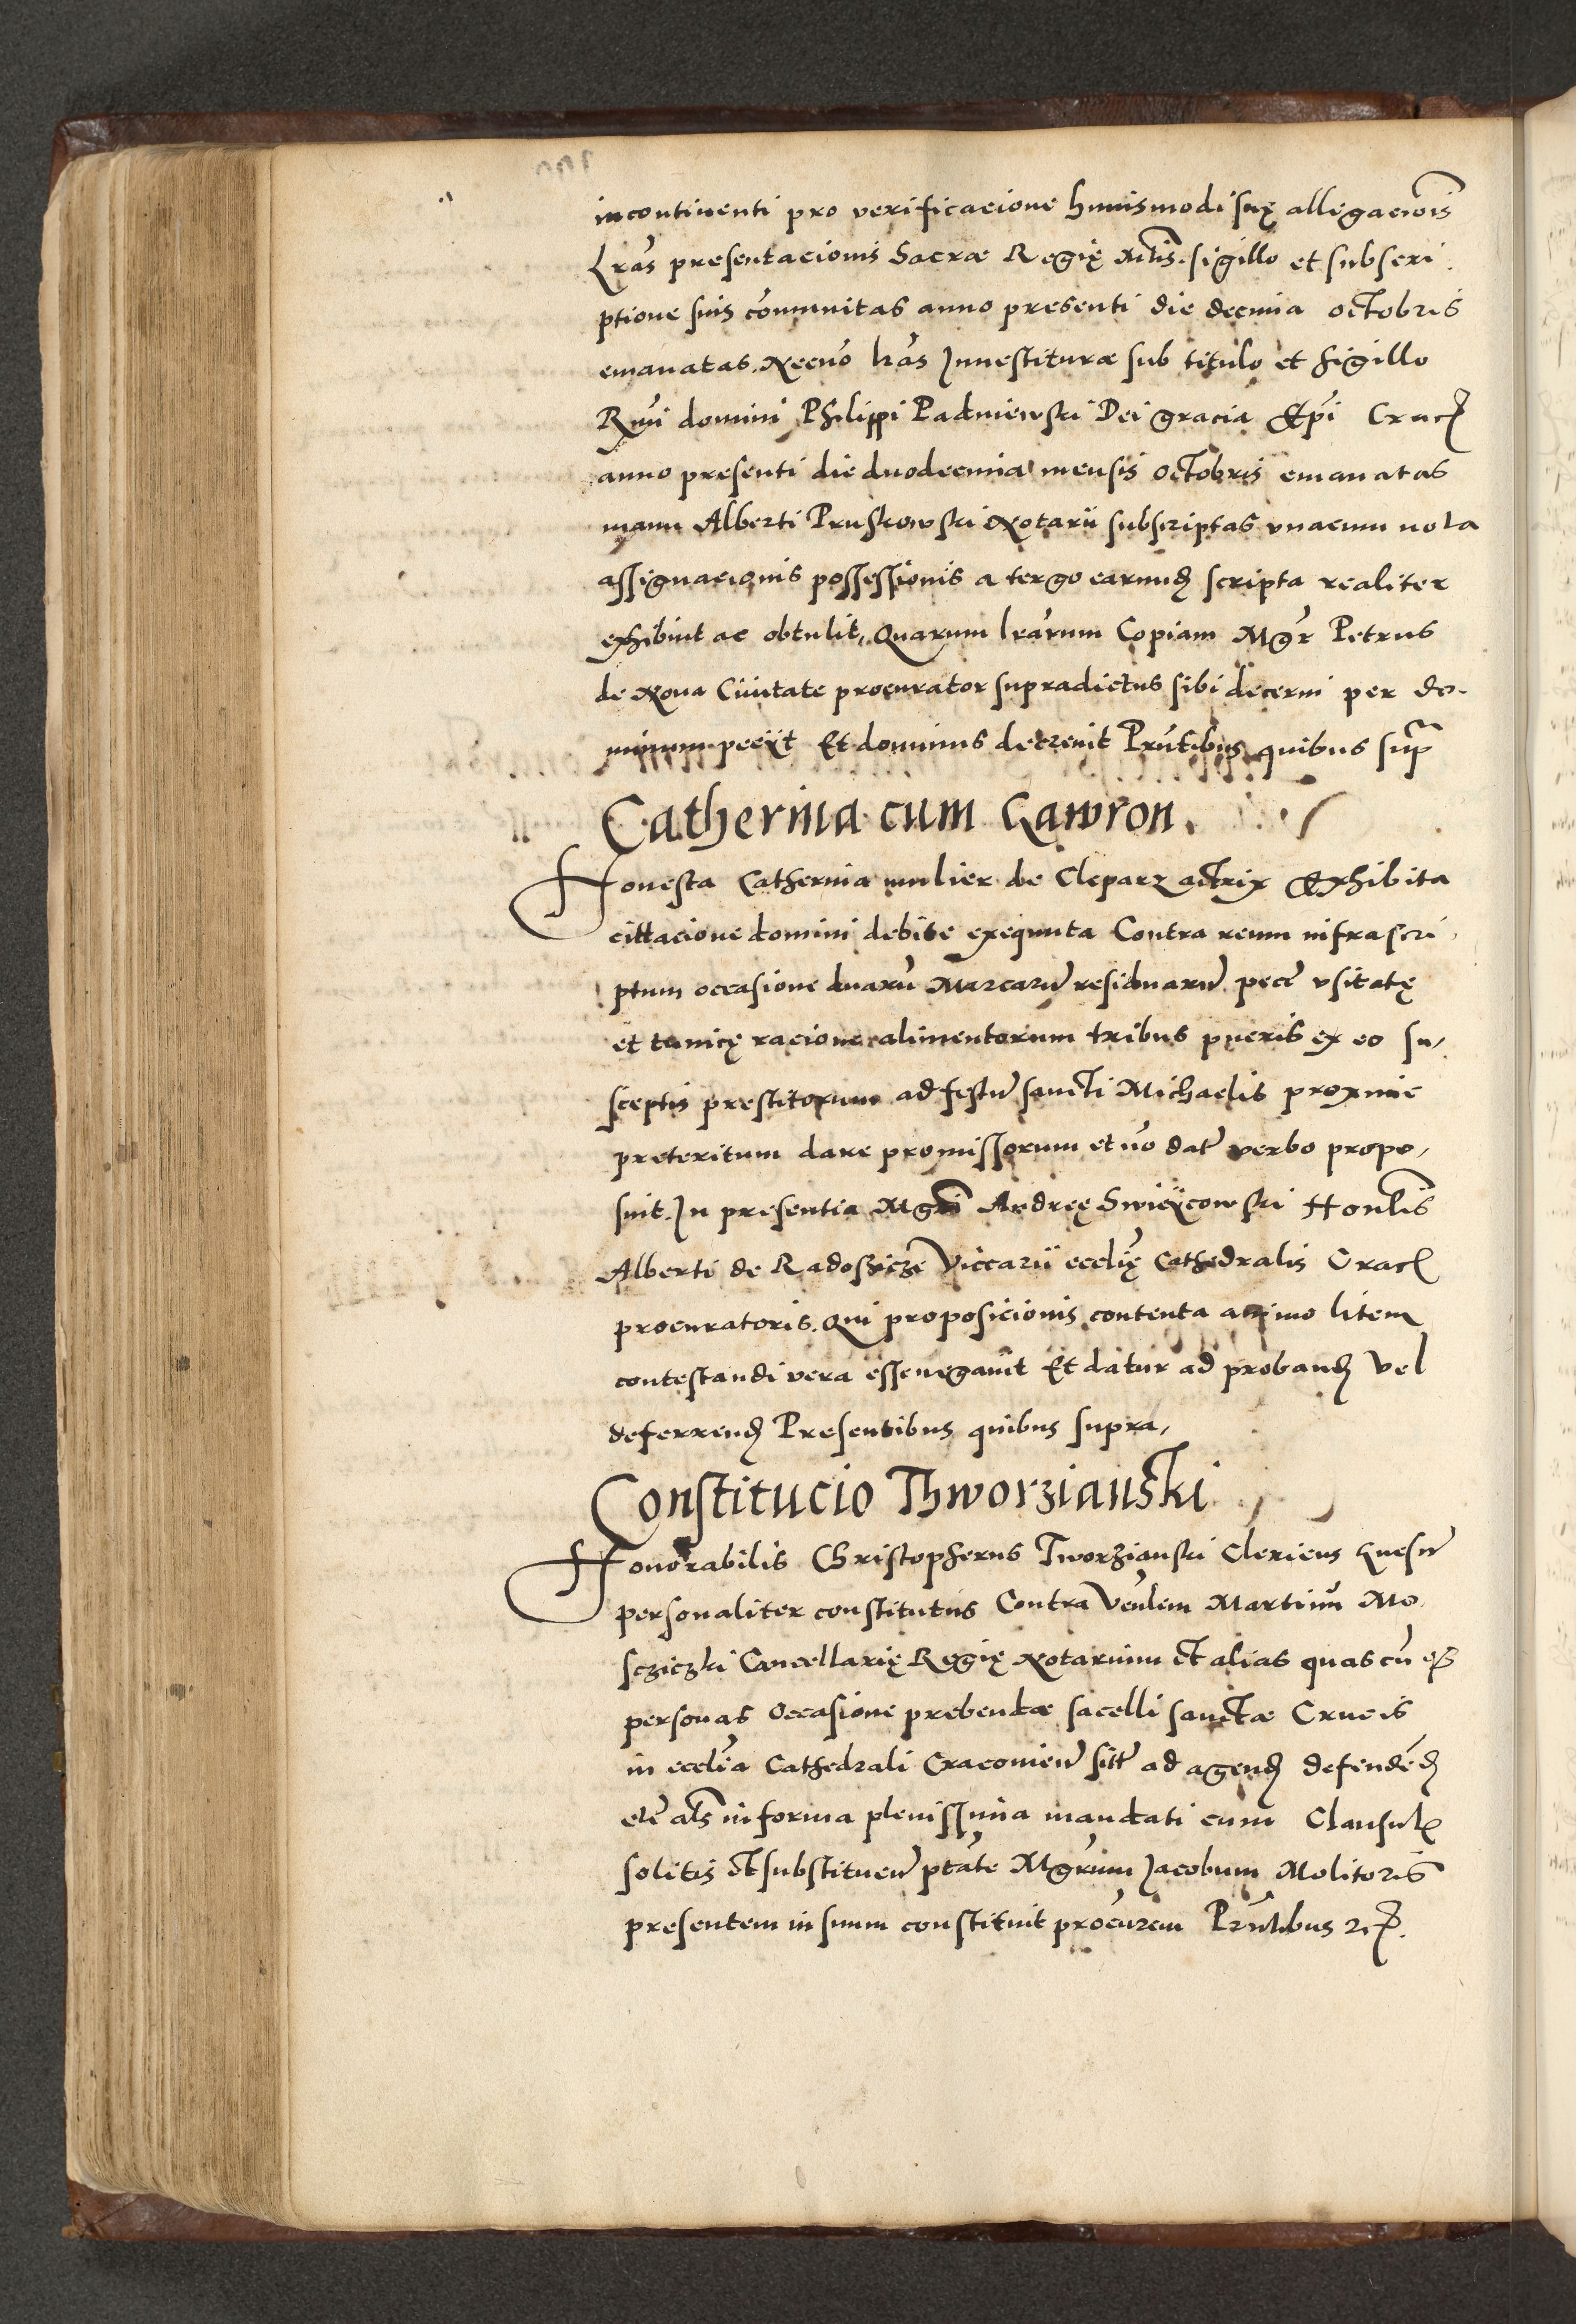 incontinenti pro verificacione huiusmodi suę allegaciois
Lras presentacionis Sacræ Regię Mtis. sigillo et subscri
ptione suis comunitas anno presenti die decima octobris
emanatas. Necno lras Inuestituræ sub titulo et sigillo
Rmi domini Philippi Padniewski Dei gracia Epi Crac
anno presenti die duodecima mensis octobris emanatas
manu Alberti Pruskowski Notarii subscriptas vnacum nota
assignacionis possessionis a tergo earund scripta realiter
exhibuit ac obtulit, Quarum lrarum Copiam Mgr Petrus
de Noua Ciuitate procurator supradictus sibi decerni per do-
minum peciit Et dominus decreuit Prntibus quibus sup
Catherina cum Gawron
Honesta Catherina mulier de Cleparz actrix Exhibita
cittacione domini debite exequuta Contra reum infrascri
ptum occasione duaru Marcaru residuaru pece vsitatę
et tunicę racione alimentorum tribus pueris ex eo su,
sceptis prestitorum ad festu sancti Michaelis proxime
preteritum dare promissorum et no dat verbo propo,
suit. In presentia Mgri Andreę Swieÿcowski Honlis
Alberti de Radoszicze Viccarii ecclię Cathedralis Crac
procuratoris. Qui proposicionis contenta animo litem
contestandi vera esse negauit Et datur ad proband vel
deferrend Presentibus quibus supra,
Constitucio Thworzianski
Honorabilis Christopherus Tworzianski Clericus Gnesn
personaliter constitutus Contra Venlem Martinu Mo
scziczki Cancellarię Regię Notarium et alias quascuq
personas Occasione prebendæ sacelli sanctæ Crucis
in ecclia Cathedrali Cracouien sitt ad agend defendend
etc als in forma plenissima mandati cum Clausul
solitis et substituen ptate Mgrum Jacobum Molitoris
presentem in suum constituit procurem Prntibus